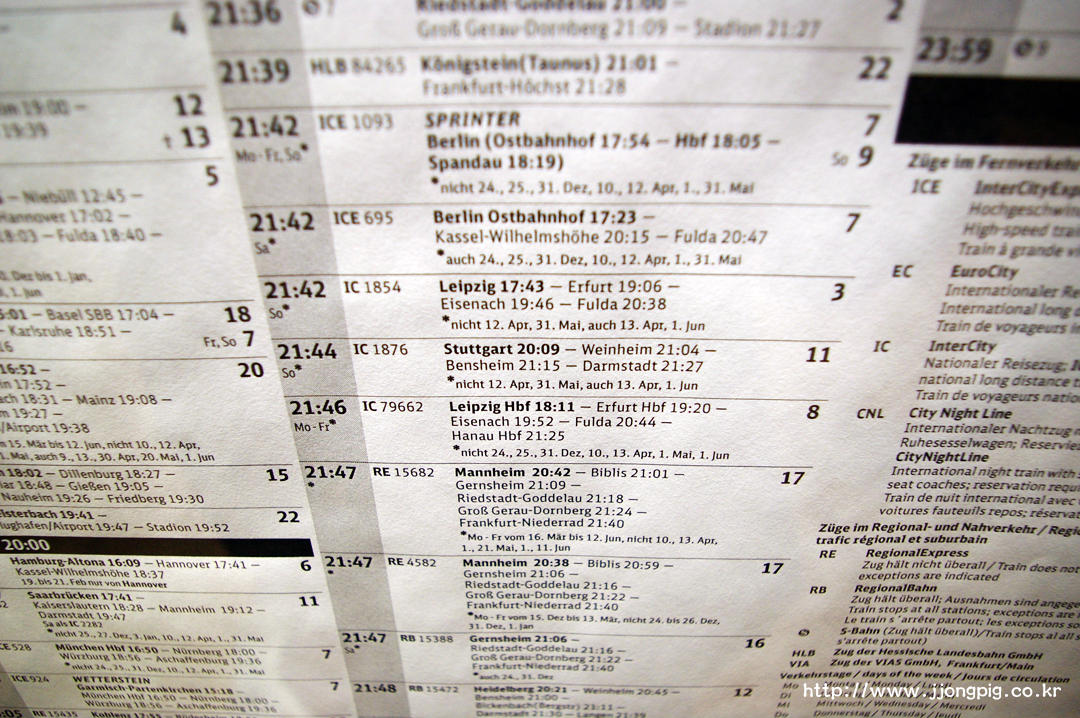 4
12
19:39
13
5
– Niebüll 12:45 –
Hannover 17:02 –
18:03 – Fulda 18:40 –
– Basel SBB 17:04 –
18
– Karlsruhe 18:51 –
Fr, So 7
16:52 –
20
17:52 –
18:31 – Mainz 19:08 –
19:27 –
/Airport 19:38
15. Mär bis 12. Jun, nicht 10., 12. Apr,
1. Mai, auch 9., 13., 30. Apr, 20. Mai, 1. Jun
18:02 – Dillenburg 18:27 –
15
18:48 – Gießen 19:05 –
Nauheim 19:26 – Friedberg 19:30
19:41 –
22
/Airport 19:47 – Stadion 19:52
20:00
Hamburg-Altona 16:09 – Hannover 17:41 –
6
Kassel-Wilhelmshöhe 18:37
19. bis 21. Feb nur von Hannover
Saarbrücken 17:41 –
11
Kaiserslautern 18:28 – Mannheim 19:12 –
Darmstadt 19:47
Sa als IC 2282
*nicht 25., 27. Dez, 3. Jan, 10., 12. Apr, 1., 31. Mai
München Hbf 16:50 – Nürnberg 18:00 –
7
Würzburg 18:56 – Aschaffenburg 19:36
ICE 924
WETTERSTEIN
7
Garmisch-Partenkirchen 15:18 –
München Hbf 16:50 – Nürnberg 18:00 –
Würzburg 18:56 – Aschaffenburg 19:36
RE 15435
Koblenz 17:55
21:36
Riedstadt-Goddelau 21:00 –
2
Groß Gerau-Dornberg 21:09 – Stadion 21:27
21:39
HLB 84265
Königstein(Taunus) 21:01 –
22
Frankfurt-Höchst 21:28
21:42
ICE 1093
SPRINTER
7
Mo - Fr, So*
Berlin (Ostbahnhof 17:54 – Hbf 18:05 –
So 9
Spandau 18:19)
*nicht 24., 25., 31. Dez, 10., 12. Apr, 1., 31. Mai
21:42
ICE 695
Berlin Ostbahnhof 17:23 –
7
Sa*
Kassel-Wilhelmshöhe 20:15 – Fulda 20:47
*auch 24., 25., 31. Dez, 10., 12. Apr, 1., 31. Mai
21:42
IC 1854
Leipzig 17:43 – Erfurt 19:06 –
3
So*
Eisenach 19:46 – Fulda 20:38
*nicht 12. Apr, 31. Mai, auch 13. Apr, 1. Jun
21:44
IC 1876
Stuttgart 20:09 – Weinheim 21:04 –
11
So*
Bensheim 21:15 – Darmstadt 21:27
*nicht 12. Apr, 31. Mai, auch 13. Apr, 1. Jun
21:46
IC 79662
Leipzig Hbf 18:11 – Erfurt Hbf 19:20 –
8
Mo - Fr*
Eisenach 19:52 – Fulda 20:44 –
Hanau Hbf 21:25
*nicht 24., 25., 31. Dez, 10., 13. Apr, 1. Mai, 1. Jun
21:47
*
RE 15682
Mannheim 20:42 – Biblis 21:01 –
17
Gernsheim 21:09 –
Riedstadt-Goddelau 21:18 –
Groß Gerau-Dornberg 21:24 –
Frankfurt-Niederrad 21:40
*Mo - Fr vom 16. Mär bis 12. Jun, nicht 10., 13. Apr,
1., 21. Mai, 1., 11. Jun
21:47
*
RE 4582
Mannheim 20:38 – Biblis 20:59 –
17
Gernsheim 21:06 –
Riedstadt-Goddelau 21:16 –
Groß Gerau-Dornberg 21:22 –
Frankfurt-Niederrad 21:40
*Mo - Fr vom 15. Dez bis 13. Mär, nicht 24. bis 26. Dez,
31. Dez, 1. Jan
21:47
Sa*
RB 15388
Gernsheim 21:06 –
16
Riedstadt-Goddelau 21:16 –
Groß Gerau-Dornberg 21:22 –
Frankfurt-Niederrad 21:40
*auch 24., 31. Dez
21:48
RB 15472
Heidelberg 20:21 – Weinheim 20:45 –
12
Bensheim 21:00 –
Bickenbach(Bergstr) 21:11 –
Darmstadt 21:30 – Langen 21:39
23:59
Züge im Fernverkehr
ICE
Hochgeschwin
High-speed train
Train à grande
EC
EuroCity
Internationaler
International long
Train de voyageurs
IC
InterCity
Nationaler Reisezug;
national long distance
Train de voyageurs
CNL
City Night Line
Internationaler Nachtzug
Ruhesesselwagen;
CityNightLine
International night train with
seat coaches; reservation
Train de nuit international avec
voitures fauteuils repos;
Züge im Regional- und Nahverkehr /
trafic régional et suburbain
RE
RegionalExpress
Zug hält nicht überall / Train does not
exceptions are indicated
RB
RegionalBahn
Zug hält überall; Ausnahmen sind
Train stops at all stations; exceptions are
Le train s'arrête partout; les exceptions
S-Bahn (Zug hält überall)/Train stops at all
s'arrête partout)
HLB
Zug der Hessische Landesbahn GmbH
VIA
Zug der VIAS GmbH, Frankfurt/Main
Verkehrstage / days of the week / Jours de circulation
Mo
Di
Mi
Mittwoch / Wednesday / Mercredi
Do
Donnerstag / Thursday / Jeudi
http://www.jjongpig.co.kr